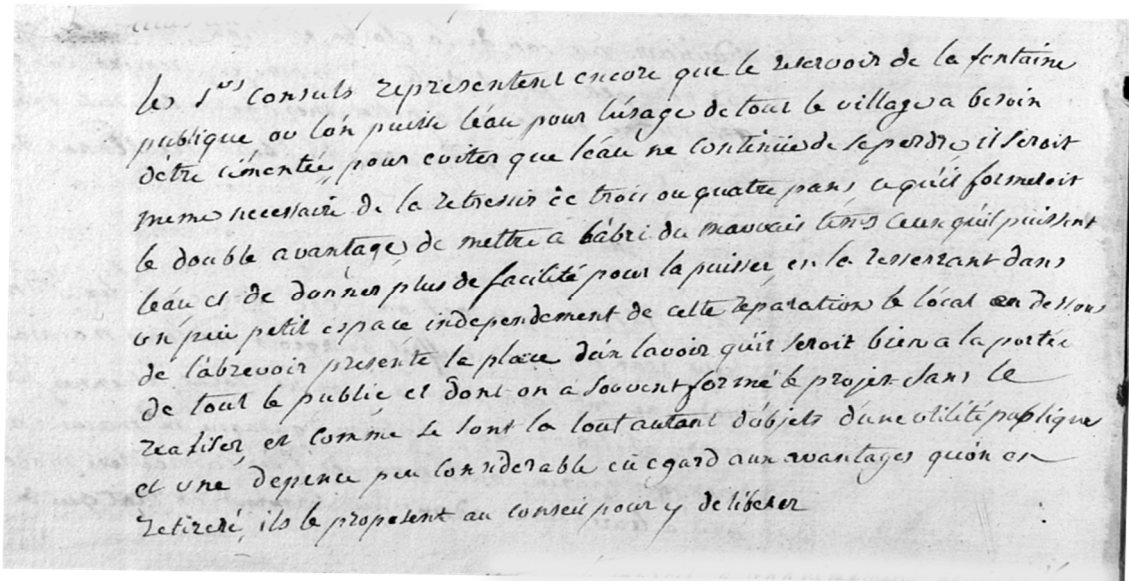 les Srs consuls representent encore que le reservoir de la fontaine
publique ou l'on puisse l'eau pour l'usage de tout le village a besoin
d'etre cimentée pour eviter que l'eau ne continüe de se perdre, il seroit
meme necessaire de la retressir de trois ou quatre pans ce qu'il formeroit
le double avantage de mettre a l'abri du mauvais tems ceux qu'il puissent
l'eau et de donner plus de facilité pour la puisser en la resserrant dans
un peu petit espace independement de cette reparation le local au dessous
de l'abrevoir presente la place d'un lavoir qu'il seroit bien a la portée
de tout le public et dont on a souvent formé le projet sans le
realiser et comme se sont la tout autant d'objets d'une utilité publique
et une depence peu considerable eu egard aux avantages qu'on en
retirera, ils le proposent au conseil pour y deliberer